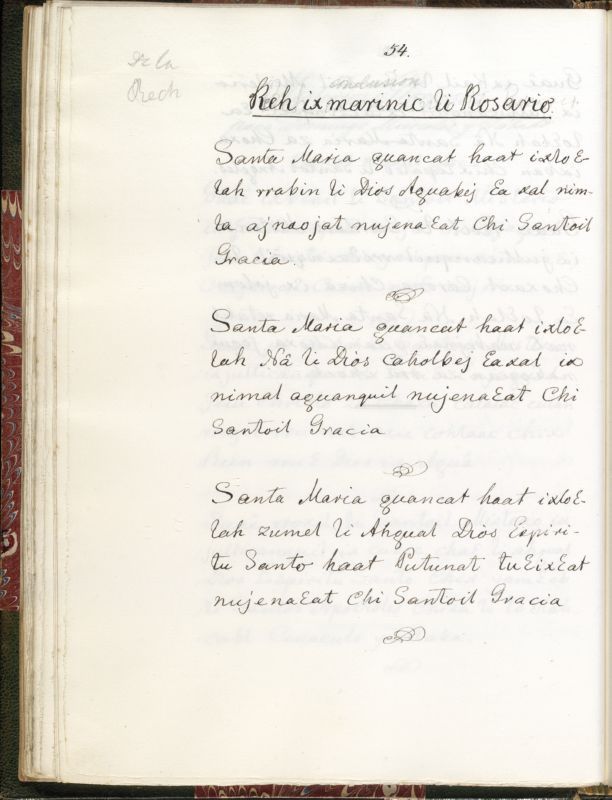 54.
De la
conclusion
Rech
Reh ix marinic li Rosario
Santa Maria quancat haat ixloɛ-
lah rrabin li Dios Aquabej Ea xal nim-
la ajnaojat nujenaɛat Chi Santoil
Gracia.
Santa Maria quancat haat ixloɛ-
lah Nâ li Dios caholbej Eaxal ix
nimal aquanquil nujenaɛat Chi
Santoil Gracia
Santa Maria quancat haat ixloɛ-
lah zumel li Ahqual Dios Espiri-
tu Santo haat Putunat tuɛixɛat
nujenaɛat Chi Santoil Gracia